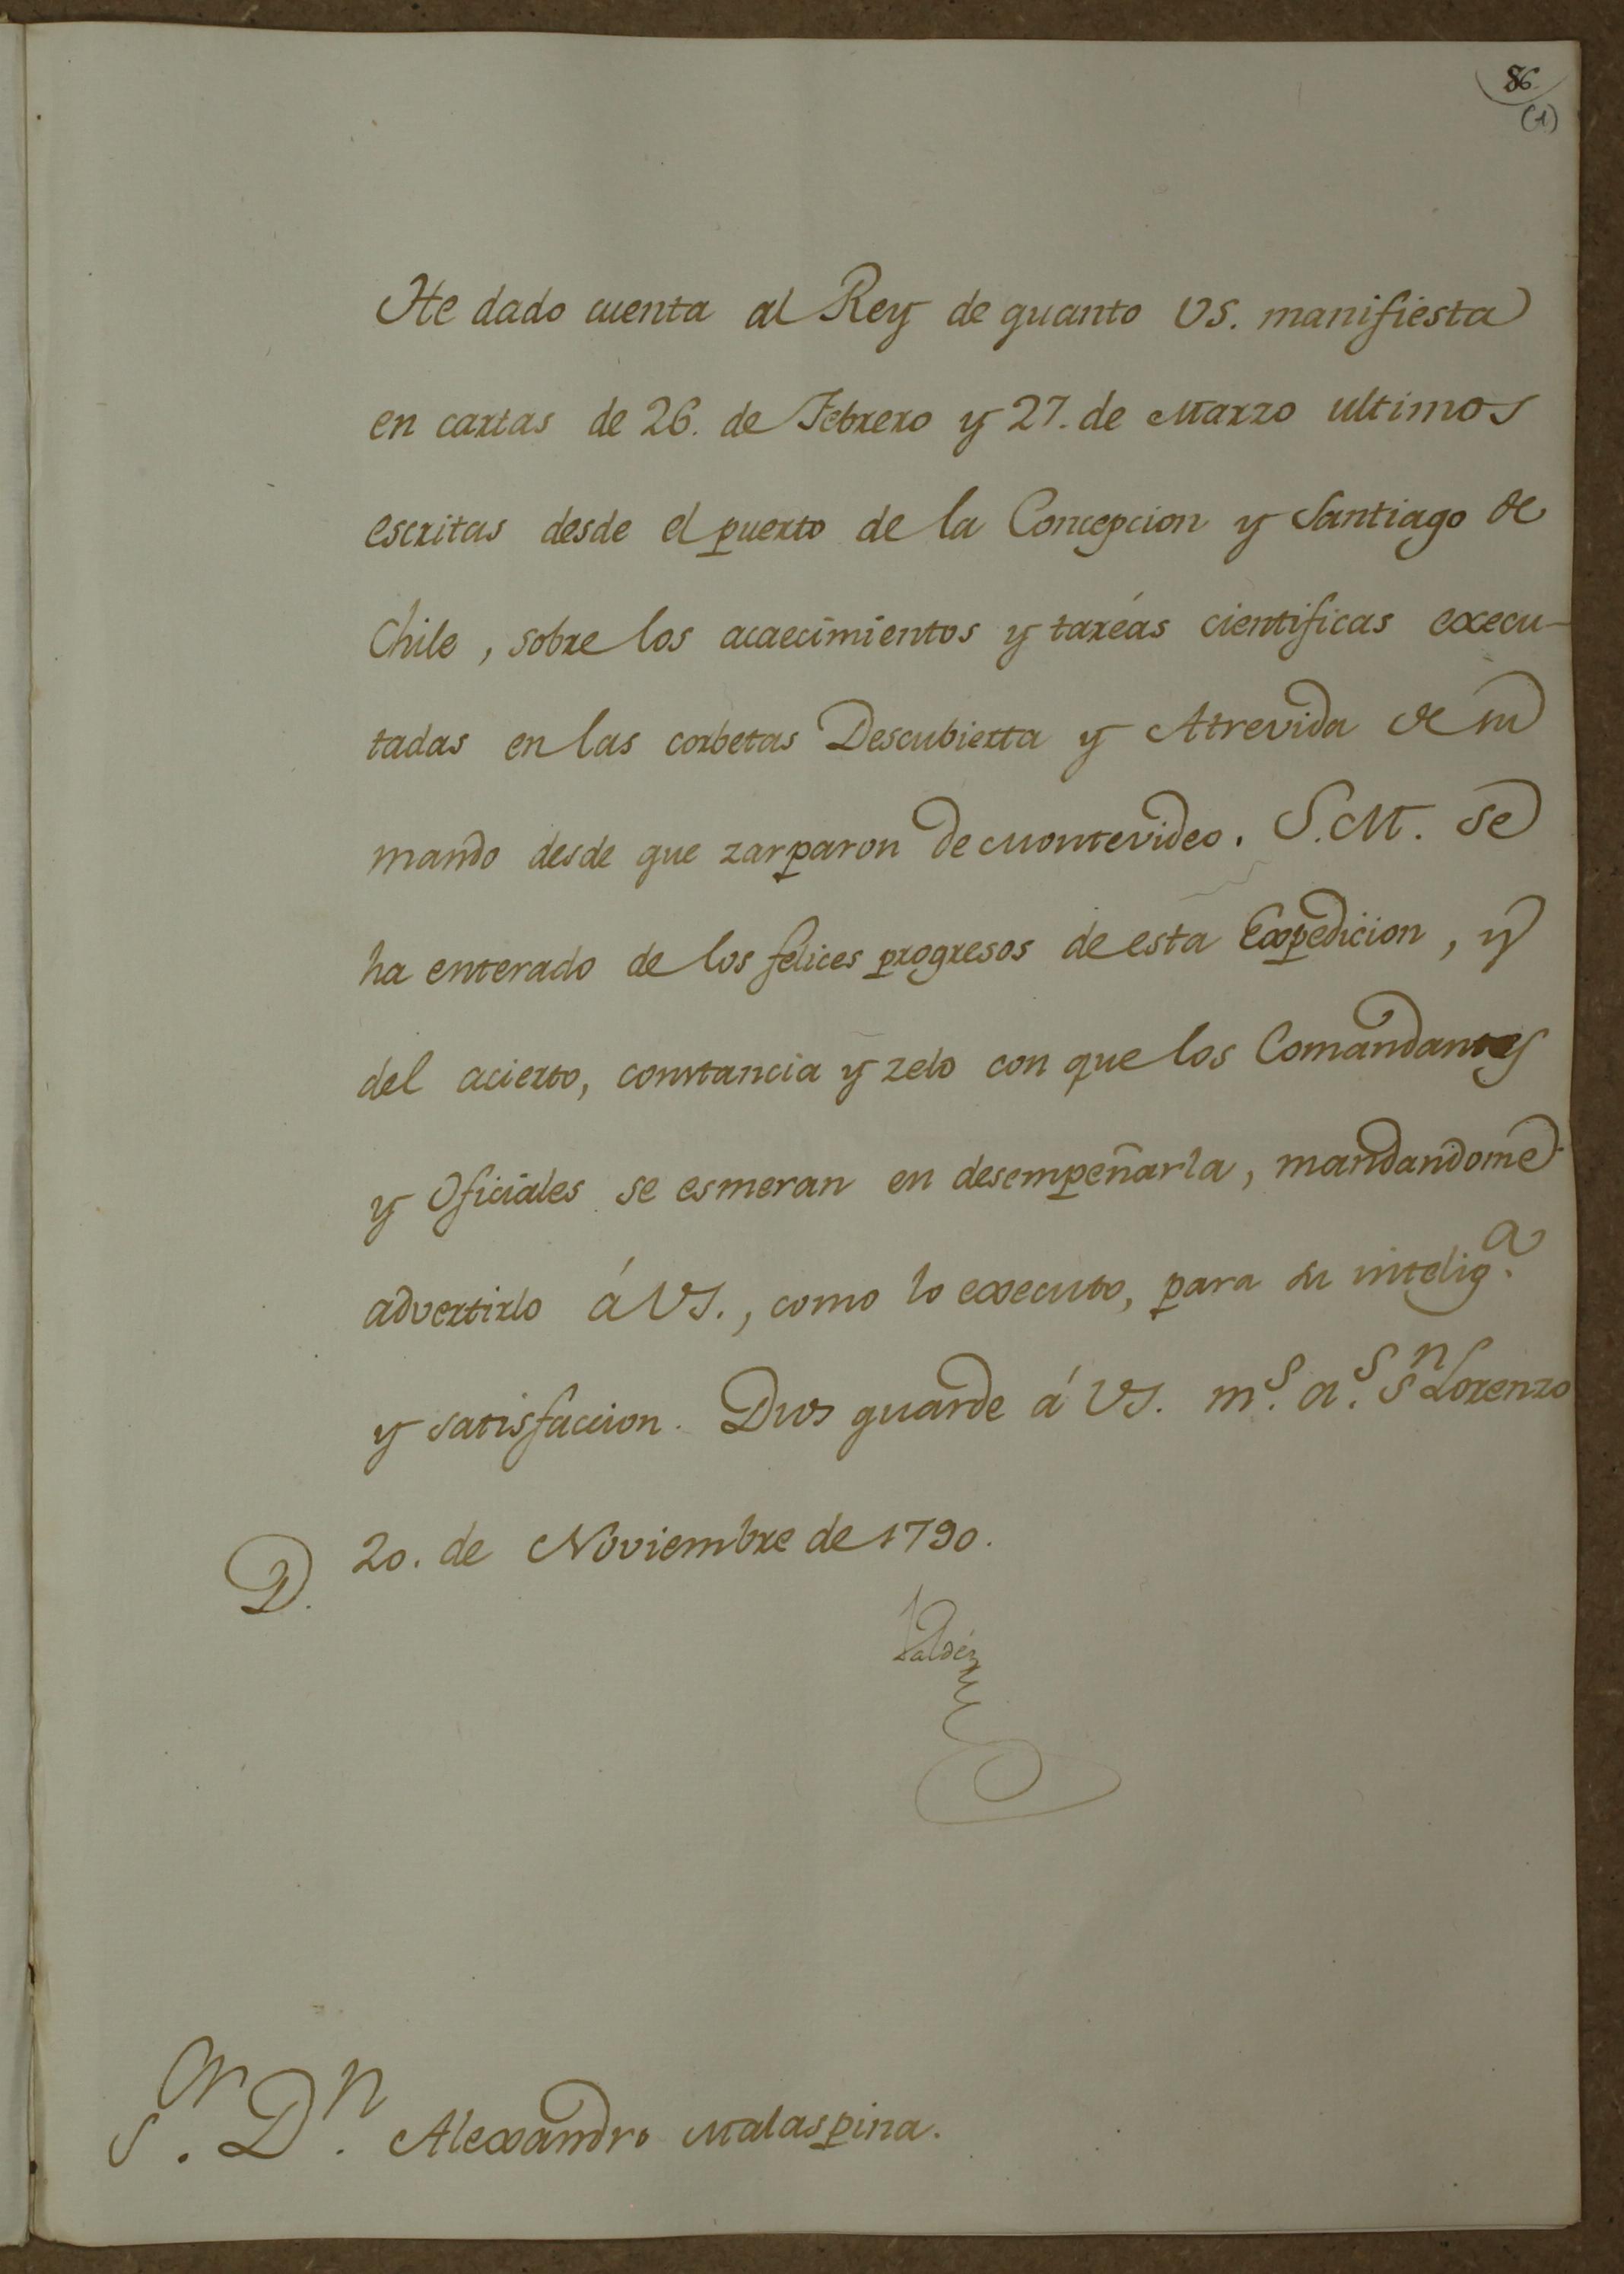 86
(1)
He dado cuenta al Rey de quanto VS. manifiesta
en cartas de 26. de Febrero y 27. de Marzo ultimos
escritas desde el puerto de la Concepcion y Santiago de
Chile, sobre los acaecimientos y taréas cientificas execu-
tadas en las corbetas Descubierta y Atrevida de su
mando desde que zarparon de Montevideo. S.M. se
ha enterado de los felices progresos de esta Expedicion, y
del acierto, constancia y zelo con que los Comandantes
y Oficiales se esmeran en desempeñarla, mandandome
advertirlo á VS., como lo executo, para su intelig.ª
y satisfaccion. Dios guarde á VS. m.s a.s Sn Lorenzo
20. de Noviembre de 1790.
D.
Valdés
S.or D.n Alexandro Malaspina.